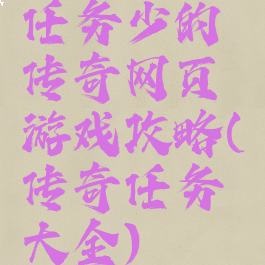 任务少的
传奇网页
游戏攻略(
传奇任务
大全)